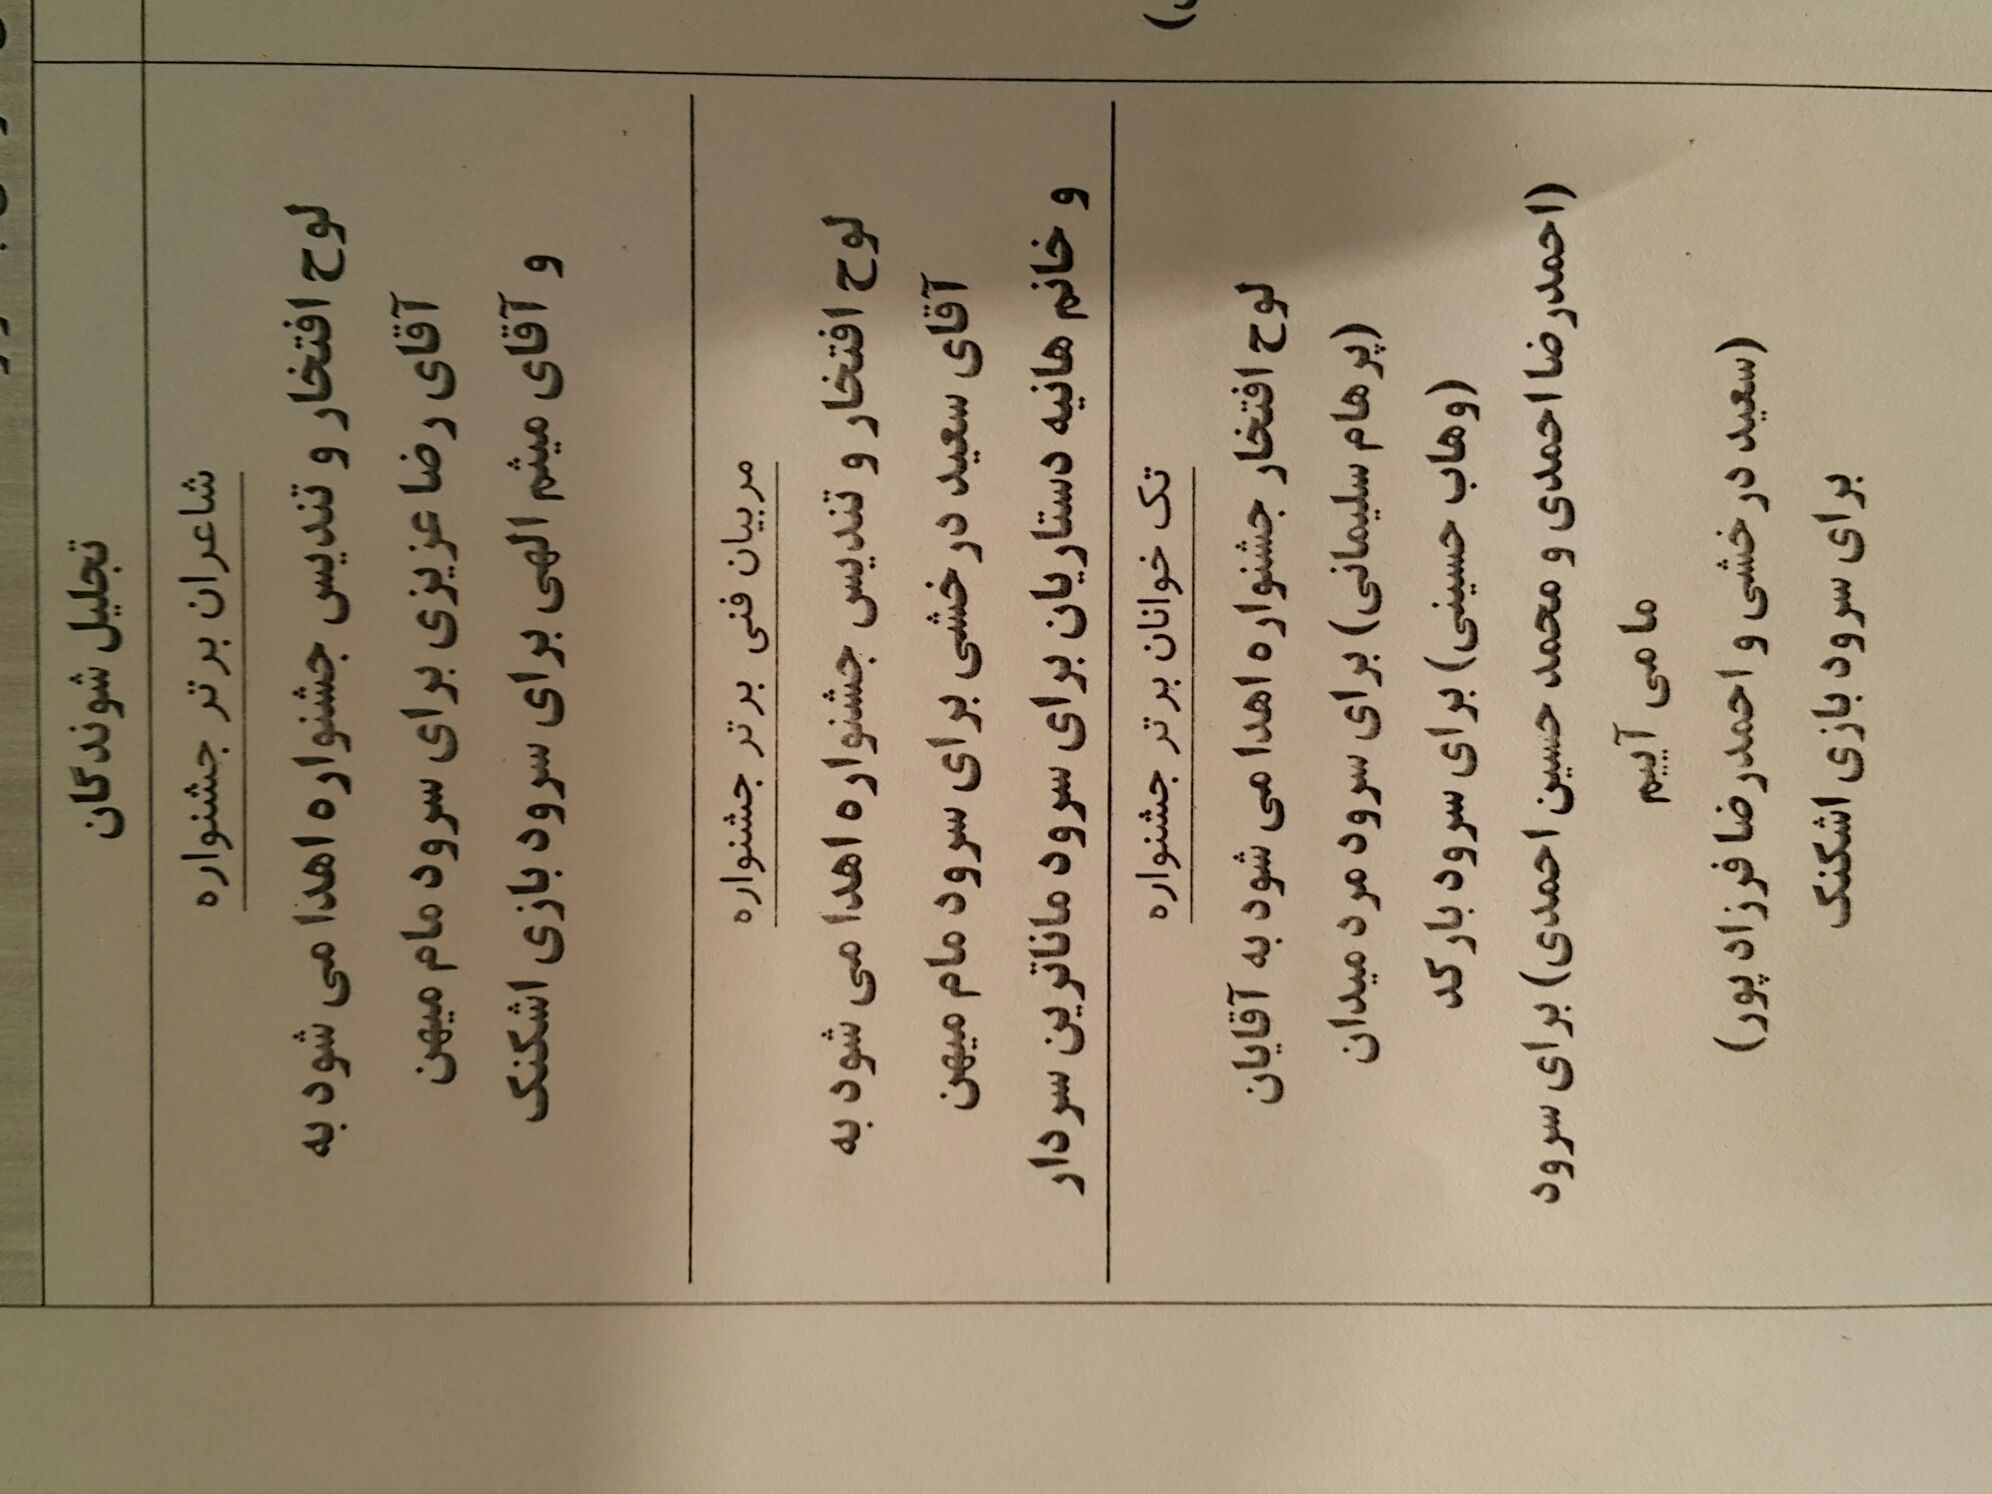 تجلیل شوندگان
شاعران برتر جشنواره
لوح افتخار و تندیس جشنواره اهدا می شود به
آقای رضا عزیزی برای سرود مام میهن
و آقای میثم الهی برای سرود بازی اشکنک
مربیان فنی برتر جشنواره
لوح افتخار و تندیس جشنواره اهدا می شود به
آقای سعید درخشی برای سرود مام میهن
و خانم هانیه دستاریان برای سرود ماناترین سردار
تک خوانان برتر جشنواره
لوح افتخار جشنواره اهدا می شود به آقایان
(پرهام سلیمانی) برای سرود مرد میدان
(وهاب حسینی) برای سرود بارکد
(احمدرضا احمدی و محمد حسین احمدی) برای سرود
ما می آییم
(سعید درخشی و احمدرضا فرزاد پور)
برای سرود بازی اشکنک